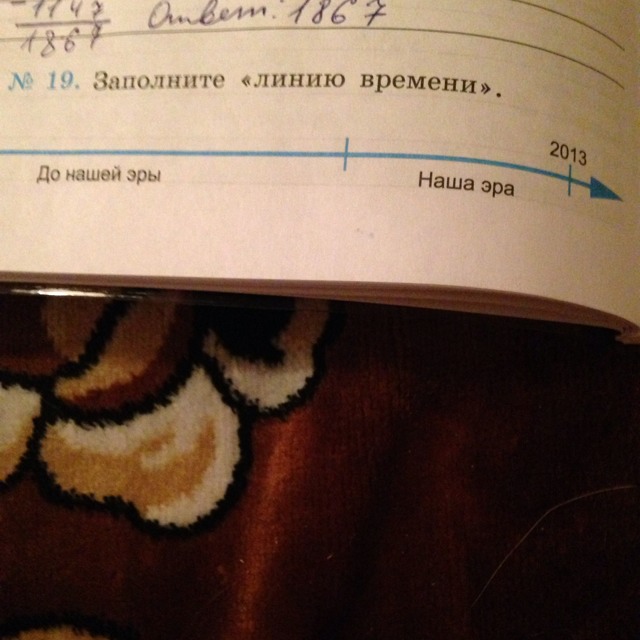 1147
1867
Ответ: 1867
№ 19. Заполните «линию времени».
2013
До нашей эры
Наша эра